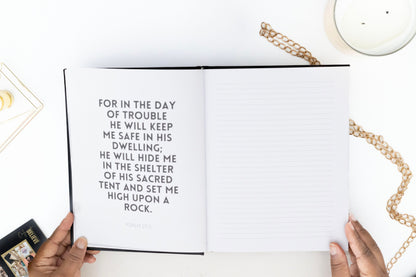 FOR IN THE DAY
OF TROUBLE
HE WILL KEEP
ME SAFE IN HIS
DWELLING;
HE WILL HIDE ME
IN THE SHELTER
OF HIS SACRED
TENT AND SET ME
HIGH UPON A
ROCK.